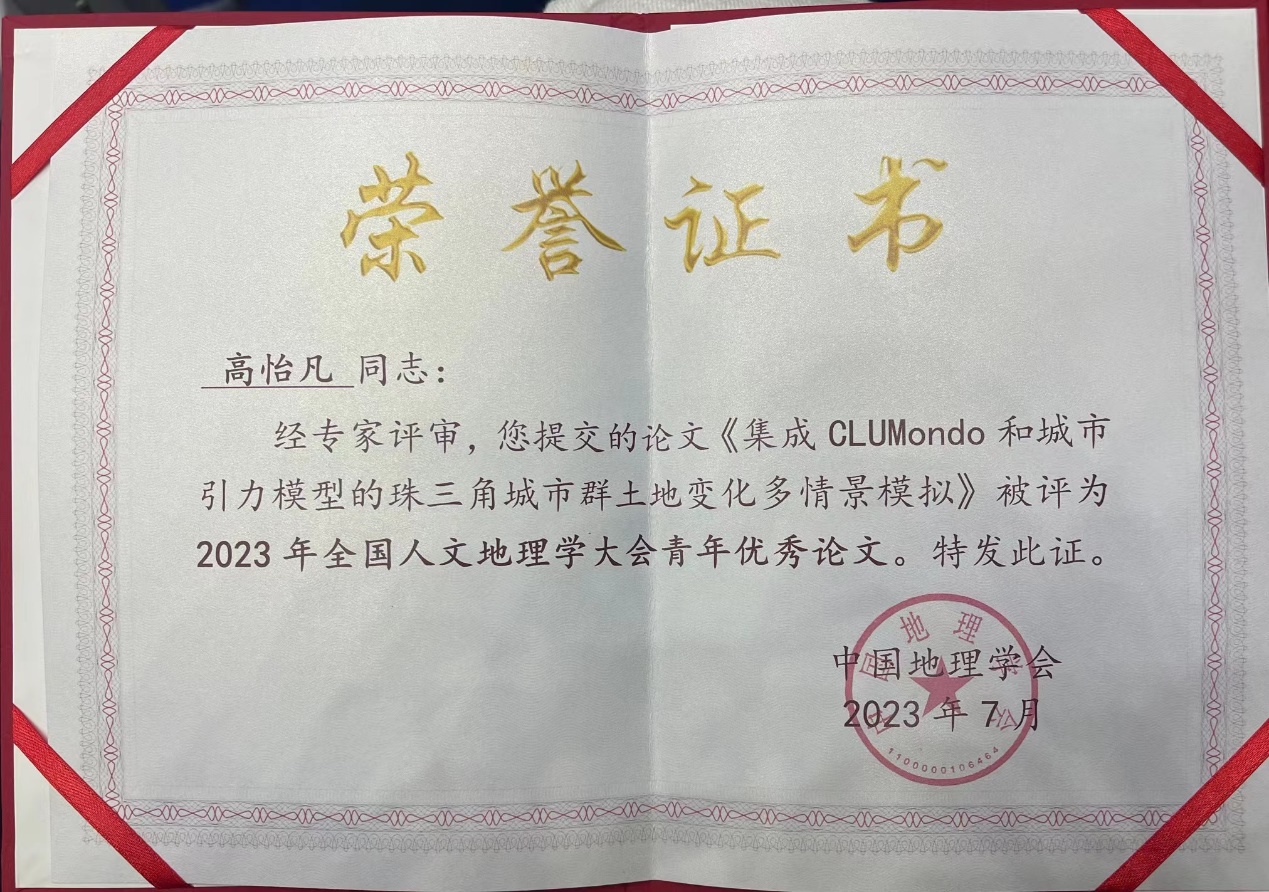 荣誉证书
高怡凡 同志：
经专家评审，您提交的论文《集成 CLUMondo 和城市
引力模型的珠三角城市群土地变化多情景模拟》被评为
2023 年全国人文地理学大会青年优秀论文。特发此证。
中国地理学会
2023 年 7 月
中国地理学会
1100000106464